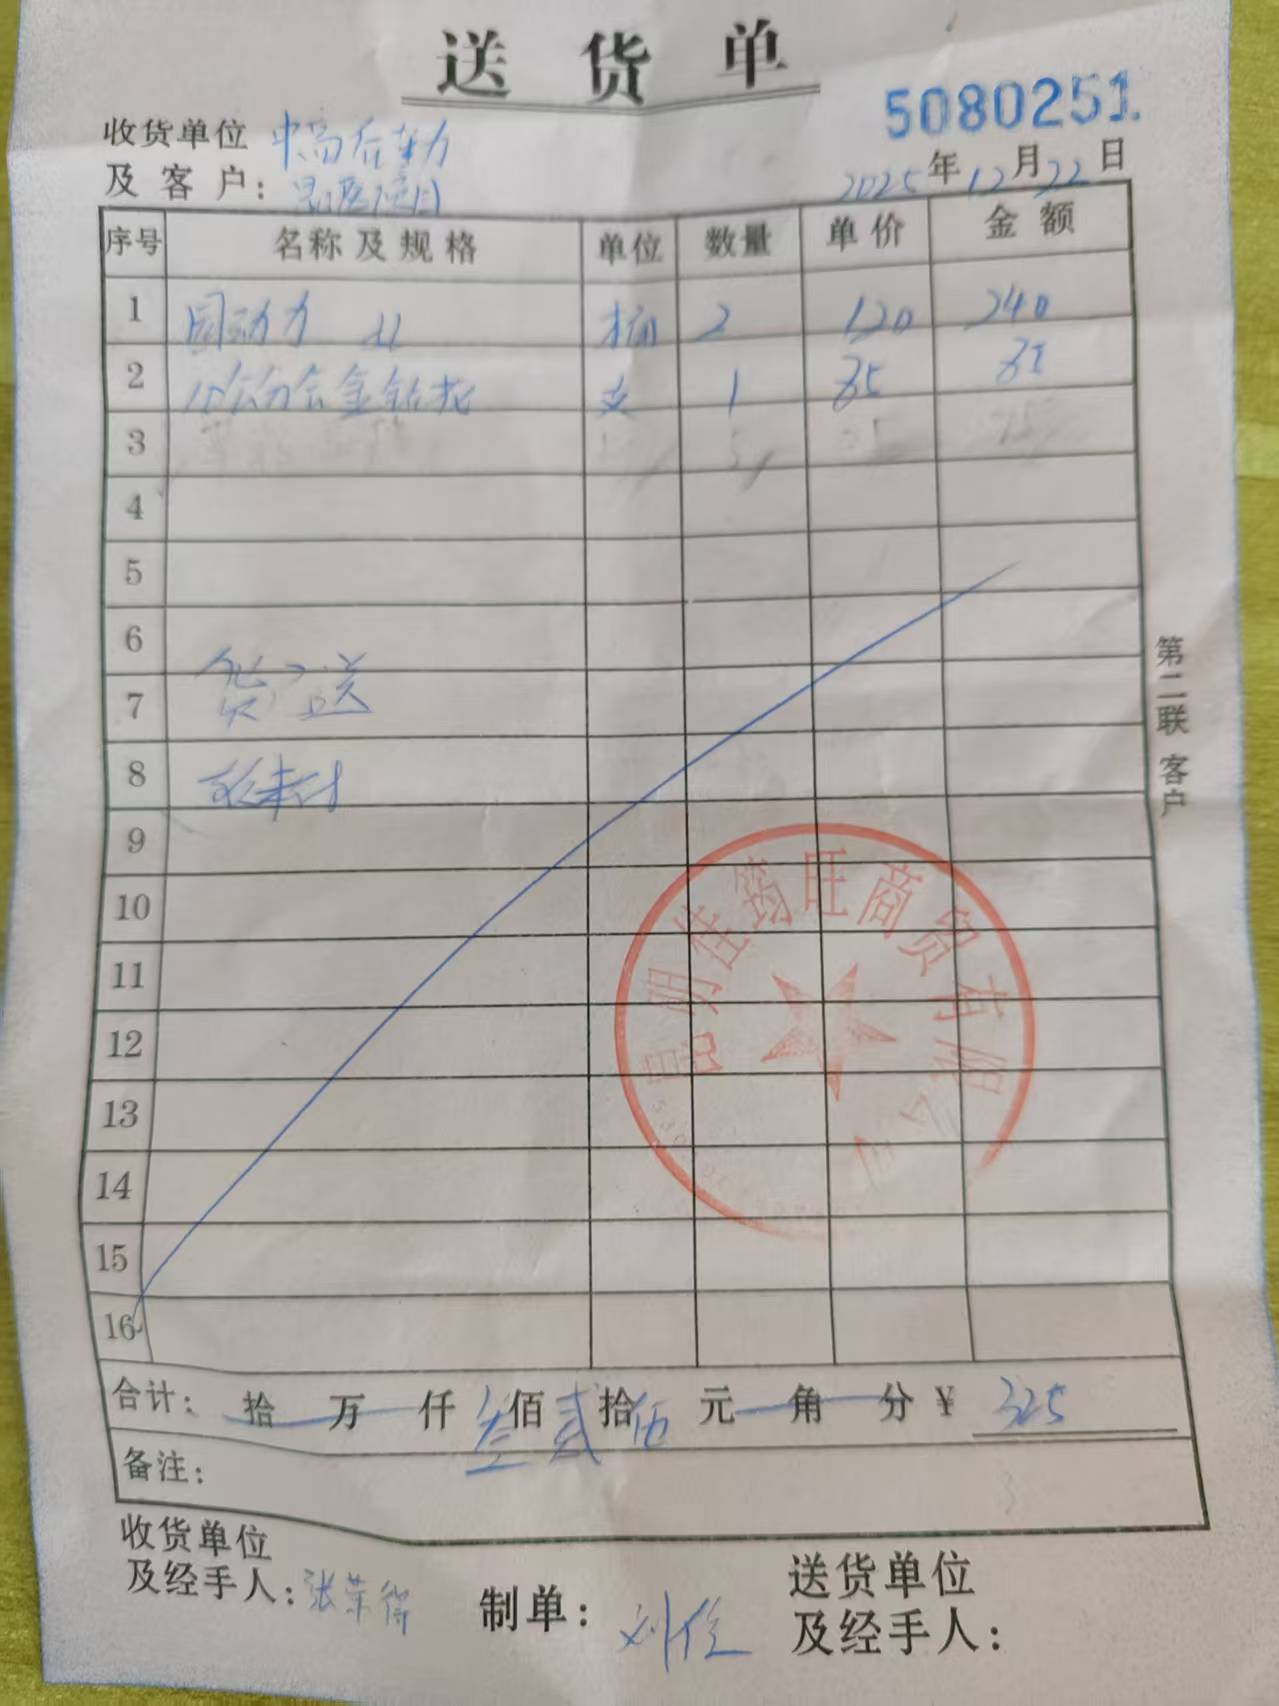 送货单
5080251.
收货单位
及客户:
2025年12月22日
序号 名称及规格 单位 数量 单价 金额
1 固动力 4L 桶 2 120 240
2 合金钻花 支 1 85 85
3
4
5
6
7 货已送
8 款未付
9
10
11
12
13
14
15
16
合计: 拾 万 仟 叁佰 贰拾 伍元 角 分 ¥ 325
备注:
收货单位
及经手人: 张荣得
制单: 刘
送货单位
及经手人:
第二联 客户
昆明佳筠旺商贸有限公司